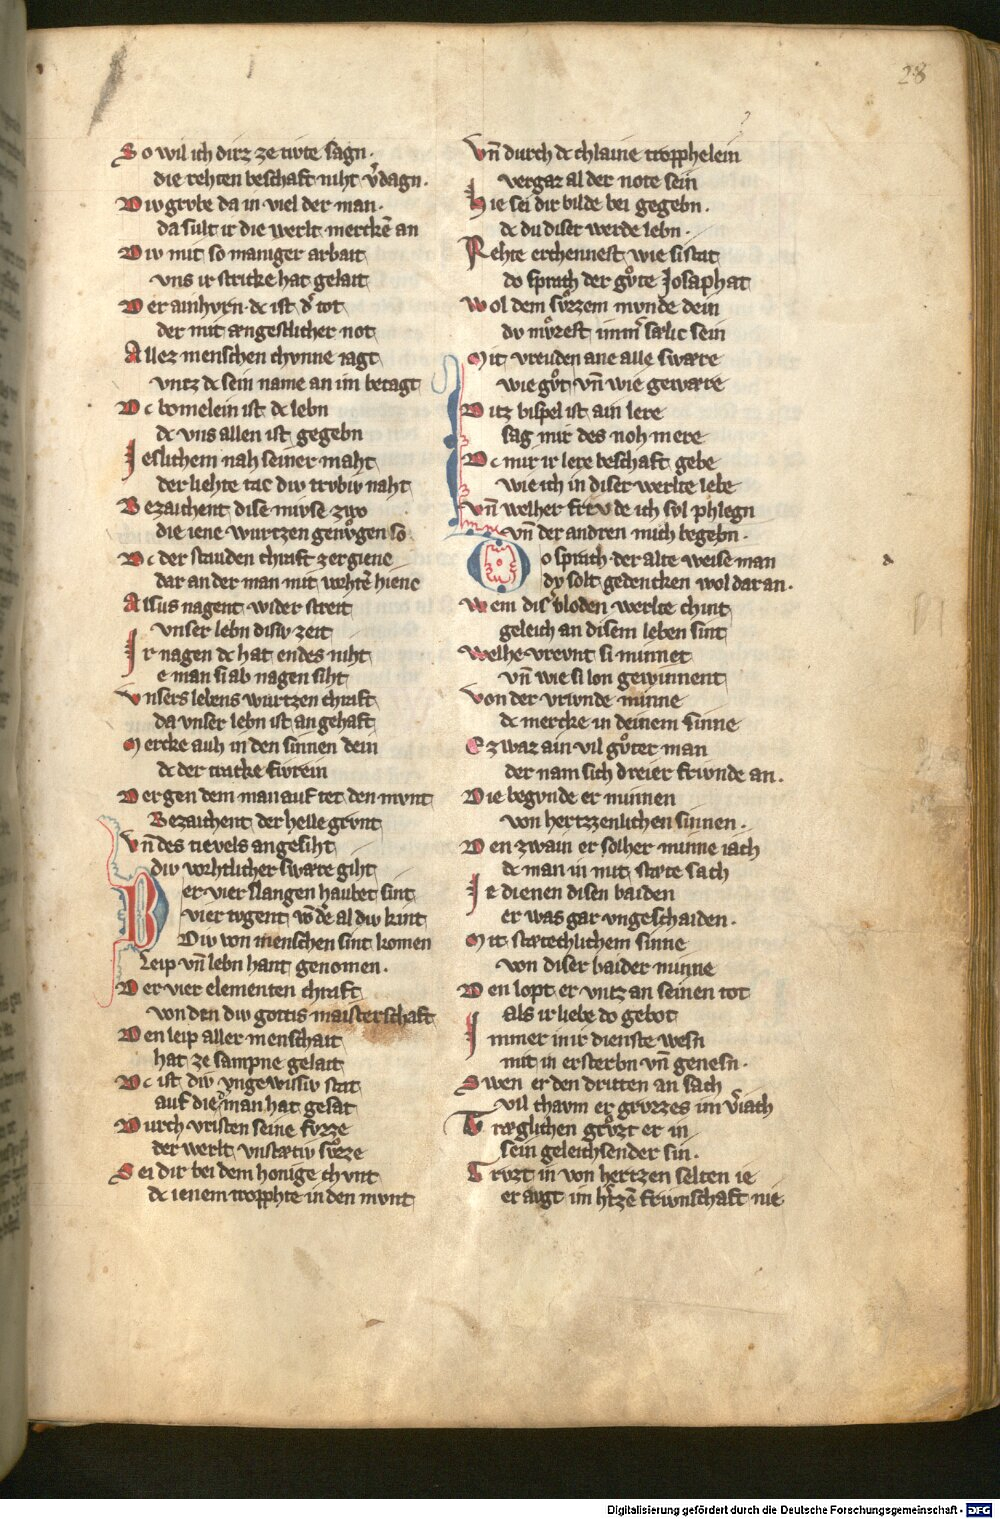 28
So wil ich dirz ze tivte sagn·
die rehten beschaft niht v͛dagn·
Div grvbe da in viel der man·
da sult ir die werlt merckē an
Div mit so maniger arbait
vns ir stricke hat gelait
Der ainhvrn· dc ist d͛ tot
der mit ængestlicher not
Allez menschen chvnne iagt
vntz dc sein name an im betagt
Dc bomelein ist dc lebn
dc vns allen ist gegebn
Ieslichem nah seiner maht
der liehte tac div trvbiv naht
Bezaichent dise mivse zwo
die iene wurtzen genvͦgen so
Dc der stauden chraft zergiene
dar an der man mit vorhtē hiene
Alsus nagent wider streit
vnser lebn disiv zeit
Ir nagen dc hat endes niht
e man si ab nagen siht
Vnsers lebens wurtzen chraft
da vnser lebn ist an gehaft
Mercke auh in den sinnen dein
dc der tracke fivrein
Der gen dem man auf tet den mvnt
Bezaichent der helle grvnt
Vn̄ des tievels angesiht
div vorhtlicher swære giht
Der vier slangen haubet sint
vier tvgent vn̄ d͛ al div kint
Div von menschen sint komen
Leip vn̄ lebn hant genomen·
Der vier elementen chraft
von den div gottis maisterschaft
Den leip aller menschait
hat ze sampne gelait
Dc ist div vngewissiv stat
auf die d͛ man hat gesat
Durch vristen seine fvzze
der werlt vnstætiv svͦzze
Sei dir bei dem honige chvnt
dc ienem tropphte in den mvnt
Vn̄ durch dc chlaine tropphelein
vergaz al der note sein
Hie sei dir bilde bei gegebn·
dc du diser werde lebn·
Rehte erchennest wie si stat
do sprach der gvͦte Iosaphat
Wol dem svͦzzem mvnde dein
dv mvͦzest imm͛ sælic sein
Mit vreuden ane alle swære
wie gvͦt vn̄ wie gewære
Ditz bispel ist ain lere
sag mir des noh mere
Dc mir ir lere beschaft gebe
wie ich in diser werlte lebe
Vn̄ welher frevde ich svl phlegn
vn̄ der andren mich begebn·
Do sprach der alte weise man
dv solt gedencken wol dar an·
Wem dis͛ bloden werlte chint
geleich an disem leben sint
Welhe vrevnt si minnet
vn̄ wie si lon gewinnent
Von der vrivnde minne
dc mercke in deinem sinne
Ez waz ain vil gvͦter man
der nam sich dreier frivnde an·
Die begvnde er minnen
von hertzzenlichen sinnen·
Den zwain er solher minne iach
dc man in mit stæte sach
Ie dienen disen baiden
er was gar vngeschaiden·
Mit stætechlichem sinne
von diser baider minne
Den lopt er vntz an seinen tot
als ir liebe do gebot
Immer in ir dienste wesn
mit in ersterbn vn̄ genesn·
Swen er den dritten an sach
vil chavm er grvzzes im v͛iach
Træglichen grvͦzt er in
sein geleichsender sin·
Grvzt in von hertzen selten ie
er avgt im h͛tzē frivnschaft nie
Digitalisierung gefördert durch die Deutsche Forschungsgemeinschaft - DFG